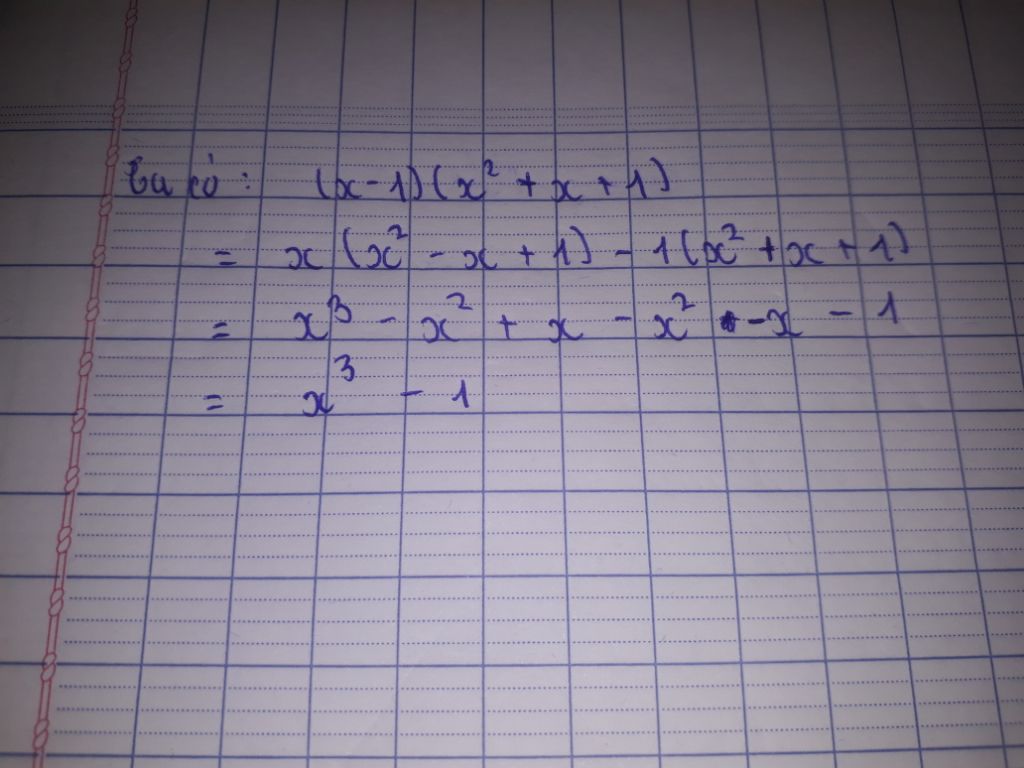 Ta có: (x-1)(x² + x + 1)
= x (x² - x + 1) - 1(x² + x + 1)
= x³ - x² + x - x² - x - 1
= x³ - 1